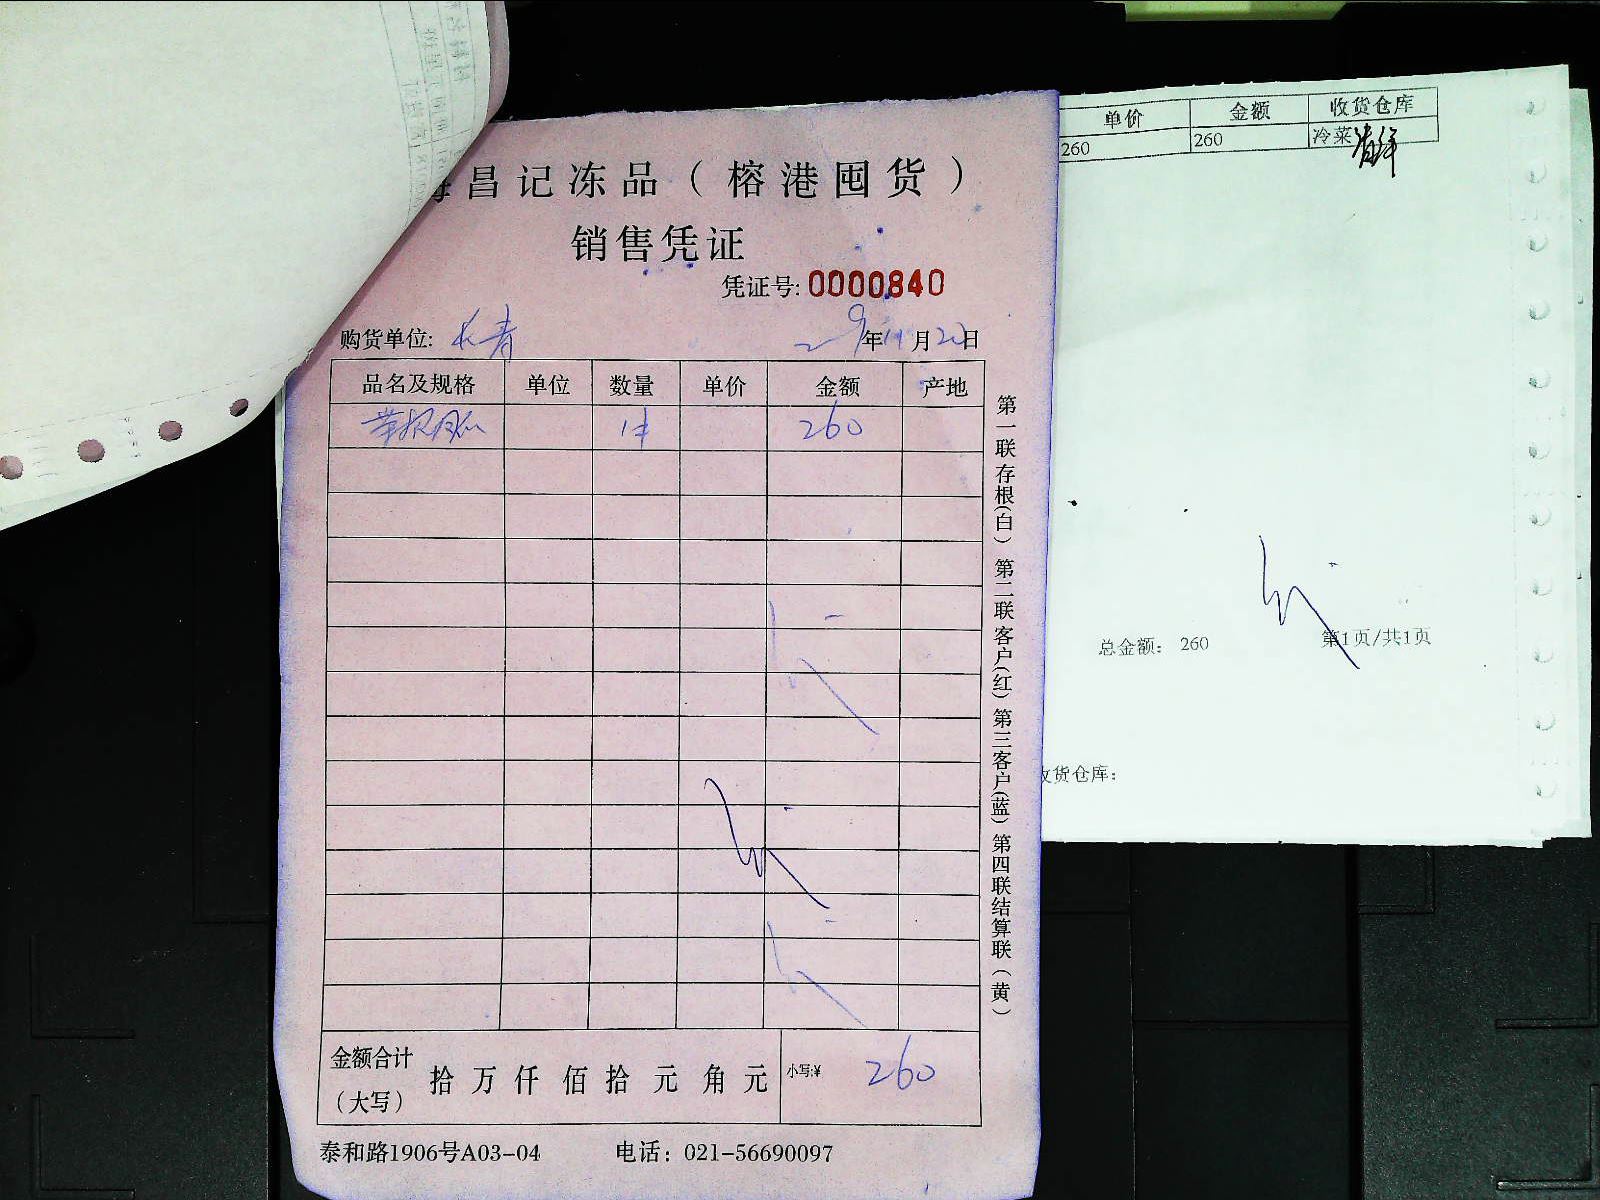 昌记冻品（榕港囤货）
销售凭证
凭证号: 0000840
购货单位: 长青 年11月 日
品名及规格 单位 数量 单价 金额 产地
1件 260
金额合计（大写） 拾 万 仟 佰 拾 元 角 元 小写:¥ 260
泰和路1906号A03-04 电话：021-56690097
第一联存根(白) 第二联客户(红) 第三客户(蓝) 第四联结算联(黄)
单价 金额 收货仓库
260 260 冷菜
总金额： 260 第1页/共1页
货仓库：